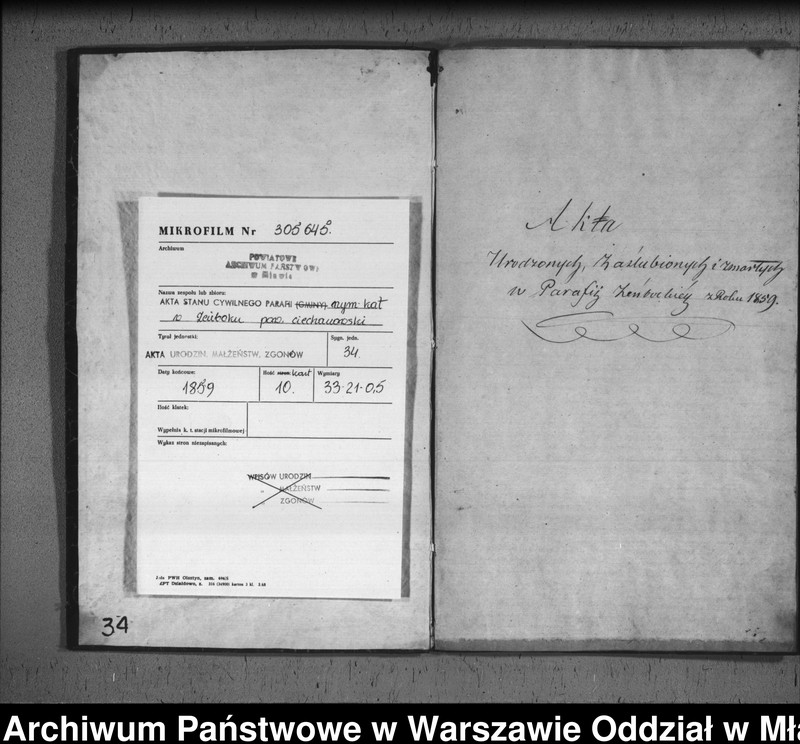 MIKROFILM Nr 305645.
Archiwum
POWIATOWE
ARCHIWUM PAŃSTWOWE
w Mławie
Nazwa zespołu lub zbioru:
AKTA STANU CYWILNEGO PARAFII (GMINY) rzym. kat
w Zeńboku pow. ciechanowski
Tytuł jednostki:
AKTA URODZIN, MAŁŻEŃSTW, ZGONÓW
Sygn. jedn.
34.
Daty końcowe:
1859
Ilość kart
10.
Wymiary
33-21-0,5
Ilość klatek:
Wypełnia k. t. stacji mikrofilmowej
Wykaz stron niezapisanych:
WPISÓW URODZIN
" MAŁŻEŃSTW
" ZGONÓW
34
Akta
Urodzonych, Zaślubionych i zmarłych
w Parafij Zeńbockiéy z Roku 1859.
Archiwum Państwowe w Warszawie Oddział w Mła